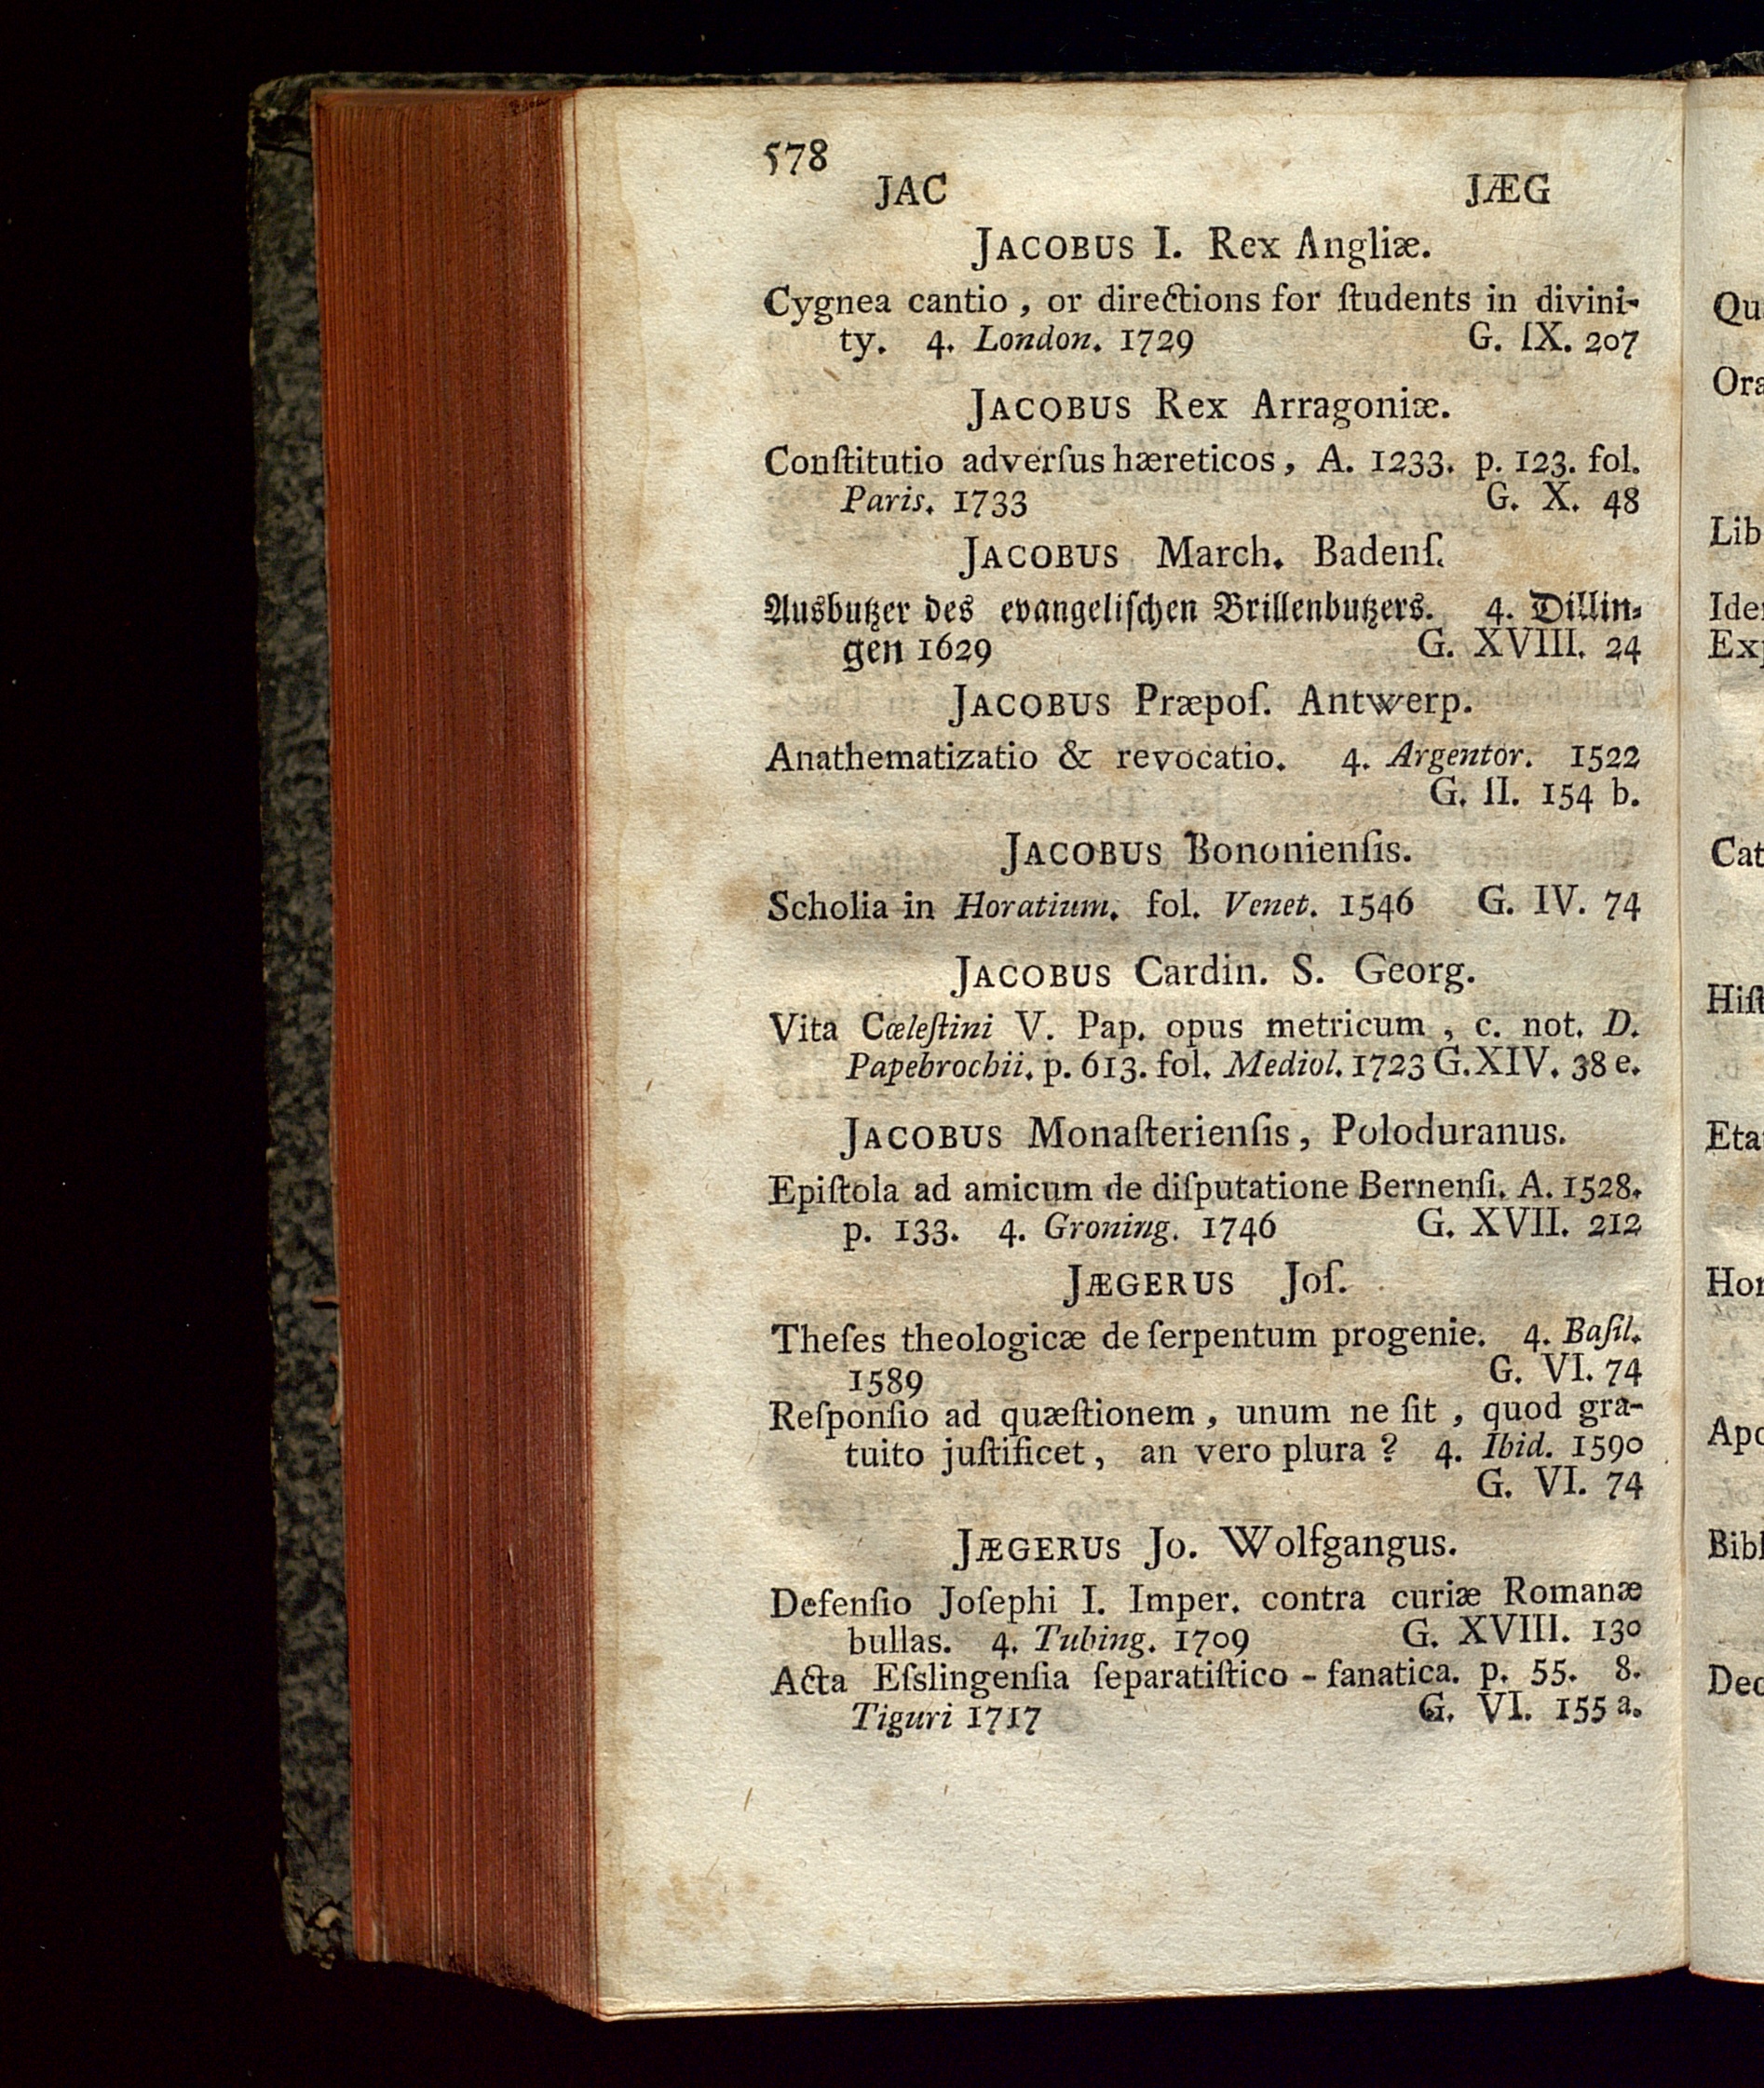 578
JAC JÆG
JACOBUS I. Rex Angliæ.
Cygnea cantio, or directions for ſtudents in divini-
ty. 4. London. 1729 G. IX. 207
JACOBUS Rex Arragoniæ.
Conſtitutio adverſus hæreticos, A. 1233. p. 123. fol.
Paris. 1733 G. X. 48
JACOBUS March. Badenſ.
Ausbutzer des evangeliſchen Brillenbutzers. 4. Dillin-
gen 1629 G. XVIII. 24
JACOBUS Præpoſ. Antwerp.
Anathematizatio & revocatio. 4. Argentor. 1522
G. II. 154 b.
JACOBUS Bononienſis.
Scholia in Horatium. fol. Venet. 1546 G. IV. 74
JACOBUS Cardin. S. Georg.
Vita Cœleſtini V. Pap. opus metricum, c. not. D.
Papebrochii. p. 613. fol. Mediol. 1723 G. XIV. 38 e.
JACOBUS Monaſterienſis, Poloduranus.
Epiſtola ad amicum de diſputatione Bernenſi. A. 1528.
p. 133. 4. Groning. 1746 G. XVII. 212
JÆGERUS Joſ.
Theſes theologicæ de ſerpentum progenie. 4. Baſil.
1589 G. VI. 74
Reſponſio ad quæſtionem, unum ne ſit, quod gra-
tuito juſtificet, an vero plura? 4. Ibid. 1590
G. VI. 74
JÆGERUS Jo. Wolfgangus.
Defenſio Joſephi I. Imper. contra curiæ Romanæ
bullas. 4. Tubing. 1709 G. XVIII. 130
Acta Eſslingenſia ſeparatiſtico-fanatica. p. 55. 8.
Tiguri 1717 G. VI. 155 a.
Qu
Ora
Lib
Ide
Exp
Cat
Hiſt
Eta
Hor
Apo
Bibl
Dec